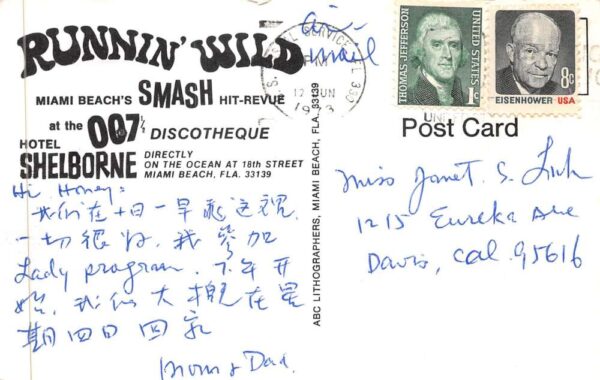 RUNNIN' WILD
MIAMI BEACH'S SMASH HIT-REVUE
at the 007½ DISCOTHEQUE
HOTEL
SHELBORNE
DIRECTLY
ON THE OCEAN AT 18th STREET
MIAMI BEACH, FLA. 33139
Hi Honey:
我们在十日一早到这裡
一切很好, 我参加
Lady program. 下午开
始, 我们大概在星
期四日回家
Mom & Dad
ABC LITHOGRAPHERS, MIAMI BEACH, FLA. 33139
air
mail
SERVICE
PM
12 JUN
1973
THOMAS JEFFERSON
UNITED STATES
1c
8c
EISENHOWER USA
Post Card
Miss Janet S.
1215 Eureka Ave
Davis, Cal. 95616